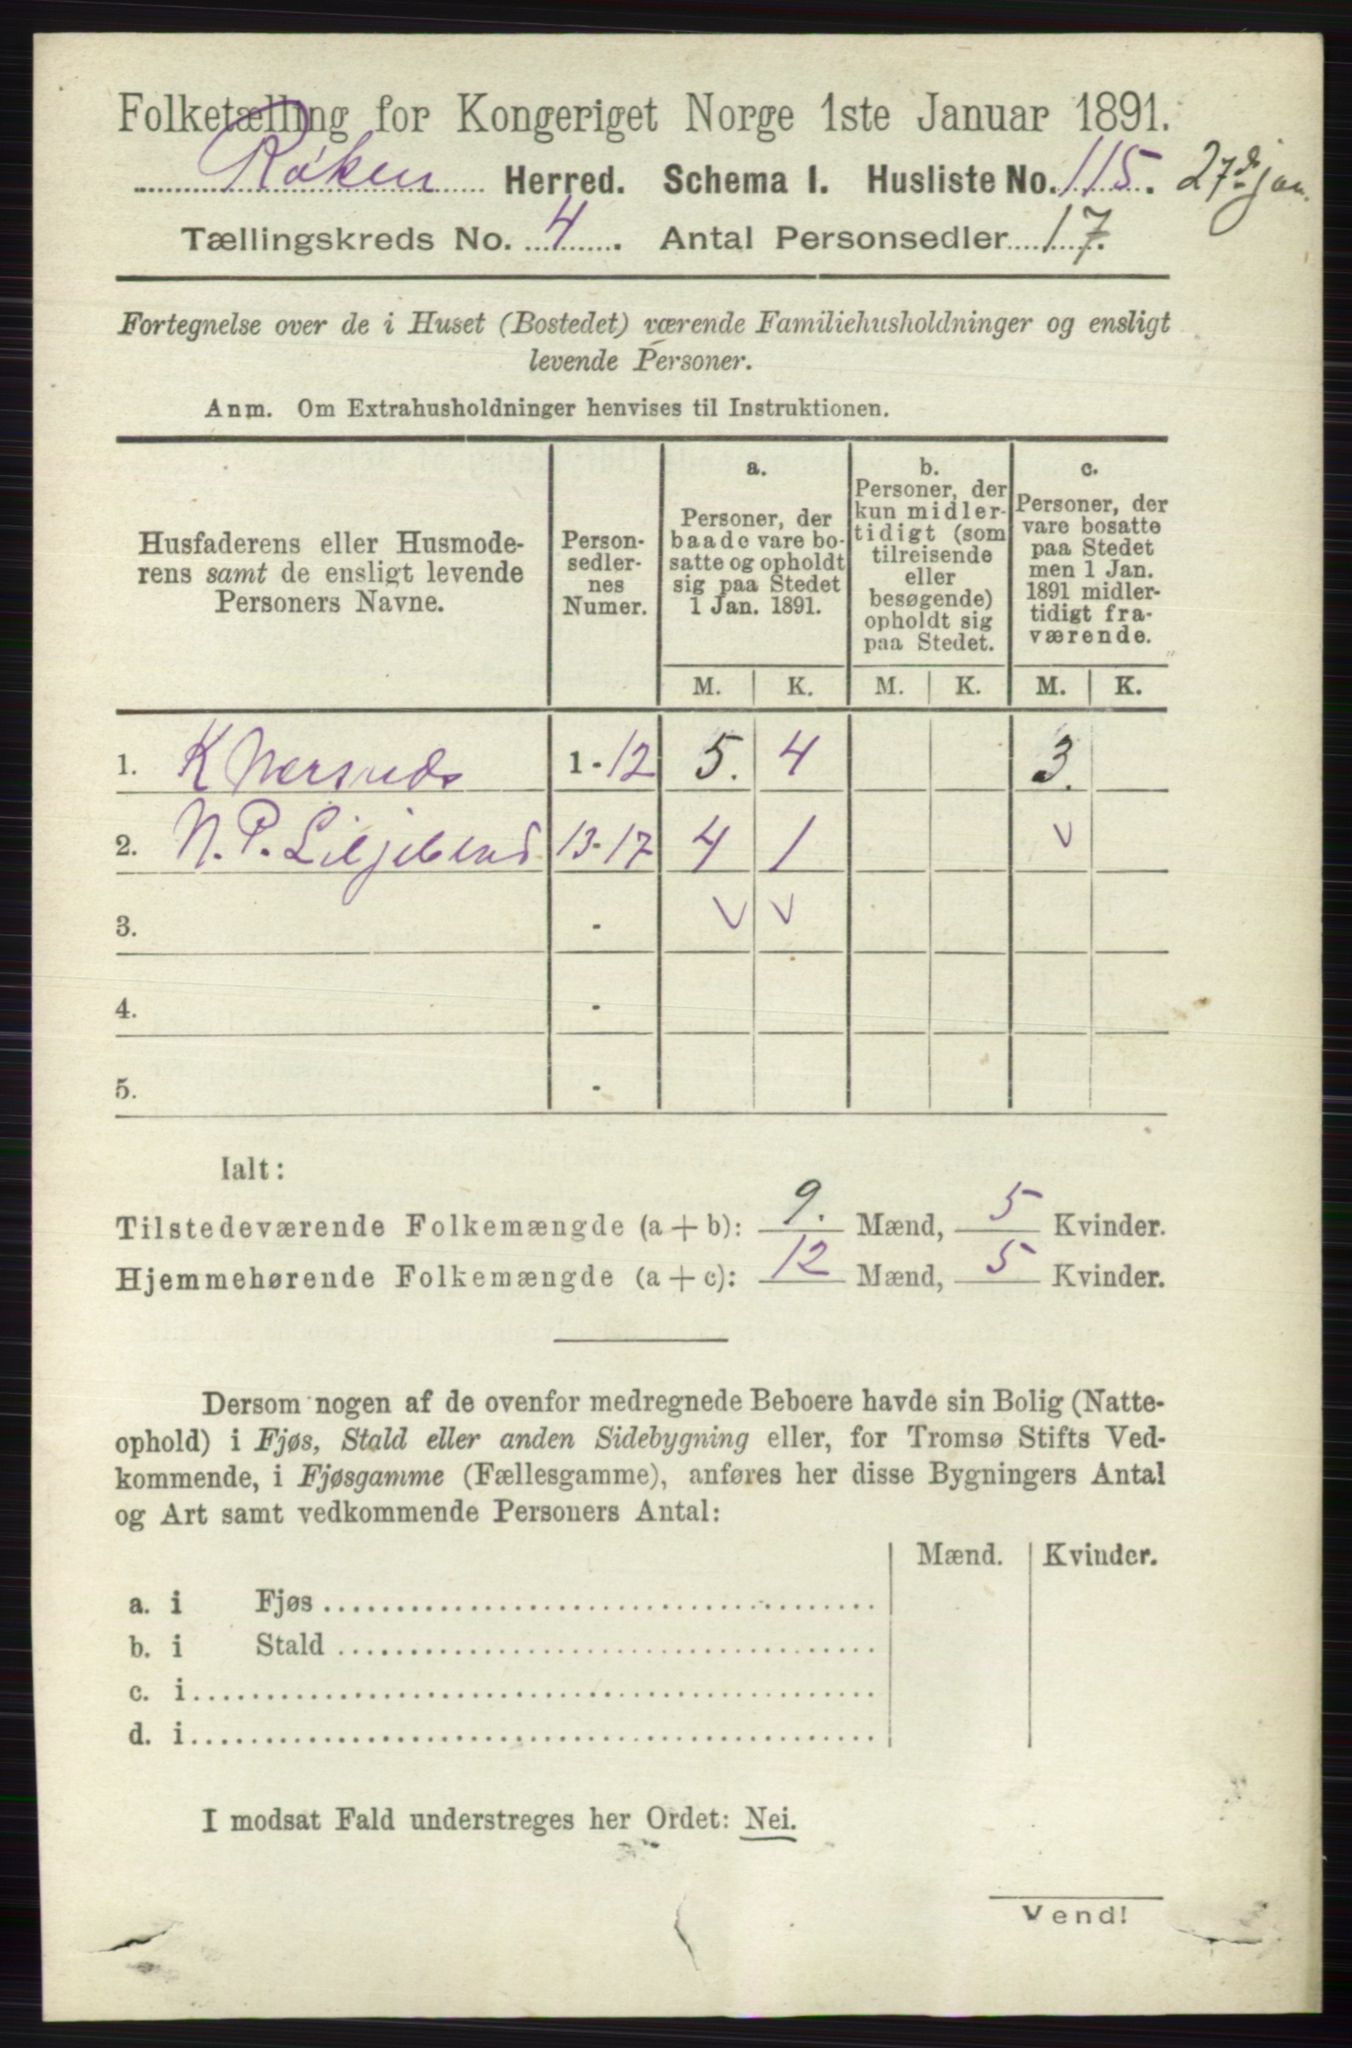 Folketælling for Kongeriget Norge 1ste Januar 1891.
Røken Herred. Schema I. Husliste No. 115. 27de jan.
Tællingskreds No. 4. Antal Personsedler 17.
Fortegnelse over de i Huset (Bostedet) værende Familiehusholdninger og ensligt
levende Personer.
Anm. Om Extrahusholdninger henvises til Instruktionen.
Husfaderens eller Husmode-
rens samt de ensligt levende
Personers Navne.
Person-
sedler-
nes
Numer.
a.
Personer, der
baade vare bo-
satte og opholdt
sig paa Stedet
1 Jan. 1891.
b.
Personer, der
kun midler-
tidigt (som
tilreisende
eller
besøgende)
opholdt sig
paa Stedet.
c.
Personer, der
vare bosatte
paa Stedet
men 1 Jan.
1891 midler-
tidigt fra-
værende.
M. K. M. K. M. K.
1. K 1-12 5. 4 3.
2. N. P. 13-17 4 1 v
3. - v v
4. -
5. -
Ialt:
Tilstedeværende Folkemængde (a + b): 9. Mænd, 5 Kvinder.
Hjemmehørende Folkemængde (a + c): 12 Mænd, 5 Kvinder.
Dersom nogen af de ovenfor medregnede Beboere havde sin Bolig (Natte-
ophold) i Fjøs, Stald eller anden Sidebygning eller, for Tromsø Stifts Ved-
kommende, i Fjøsgamme (Fællesgamme), anføres her disse Bygningers Antal
og Art samt vedkommende Personers Antal:
Mænd. Kvinder.
a. i Fjøs
b. i Stald
c. i
d. i
I modsat Fald understreges her Ordet: Nei.
Vend!